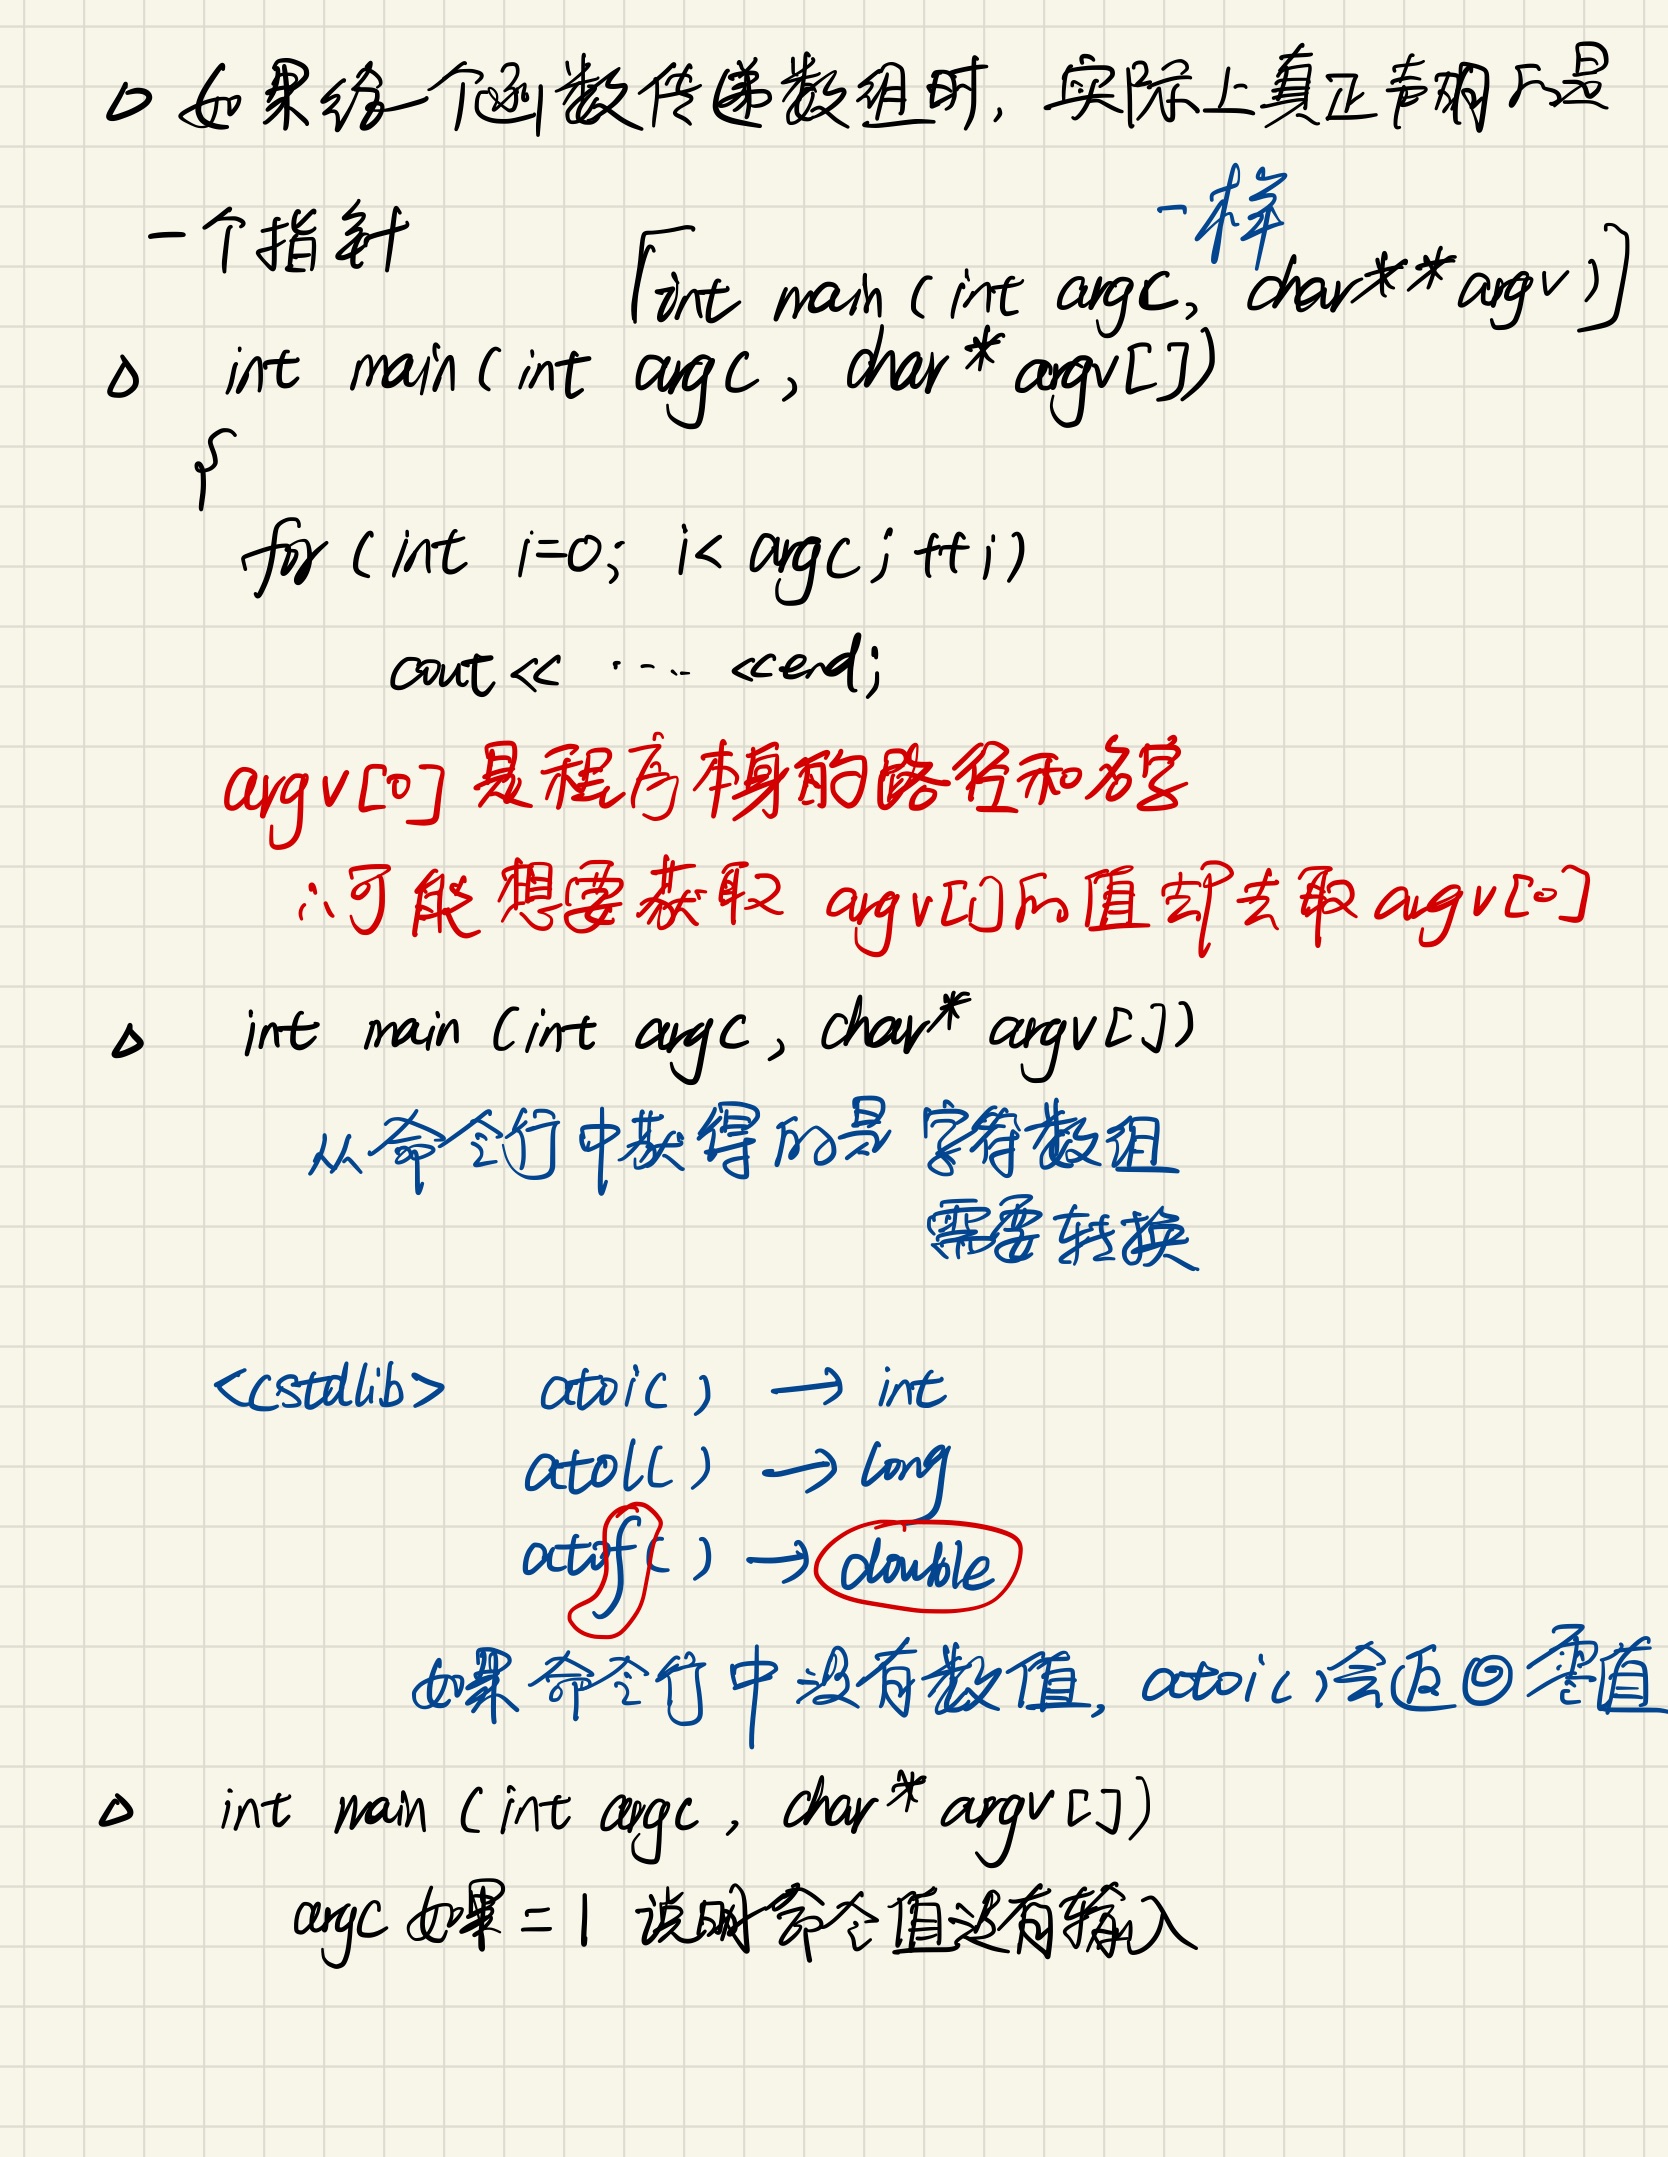 △ 如果给一个函数传递数组时, 实际上真正声明的是
一个指针
一样
[int main (int argc, char** argv)]
△ int main (int argc, char* argv[])
{
for (int i=0; i< argc; ++i)
cout << ..... <<end;
argv[0] 是程序本身的路径和名字
∴可能想要获取 argv[1]的值却去取argv[0]
△ int main (int argc, char* argv[])
从命令行中获得的是 字符数组
需要转换
<cstdlib> atoi( ) → int
atol( ) → long
atof( ) → double
如果命令行中没有数值, atoi( )会返回零值
△ int main (int argc, char* argv[])
argc 如果 = 1 说明命令值没有输入